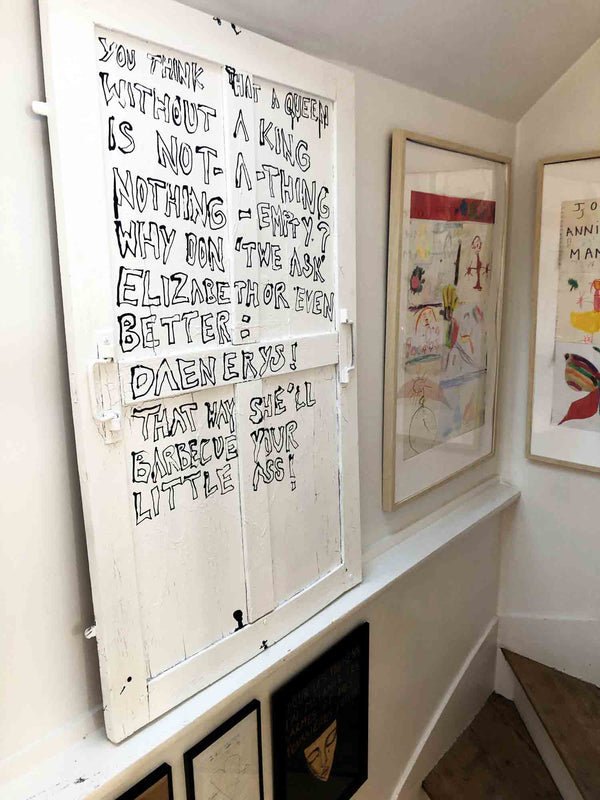 YOU THINK THAT A QUEEN
WITHOUT A KING
IS NOT- A -THING
NOTHING - EMPTY?
WHY DON 'T WE ASK
ELIZABETH OR EVEN
BETTER:
DAENERYS!
THAT WAY SHE'LL
BARBECUE YOUR
LITTLE ASS!
JO
ANNI
MAN